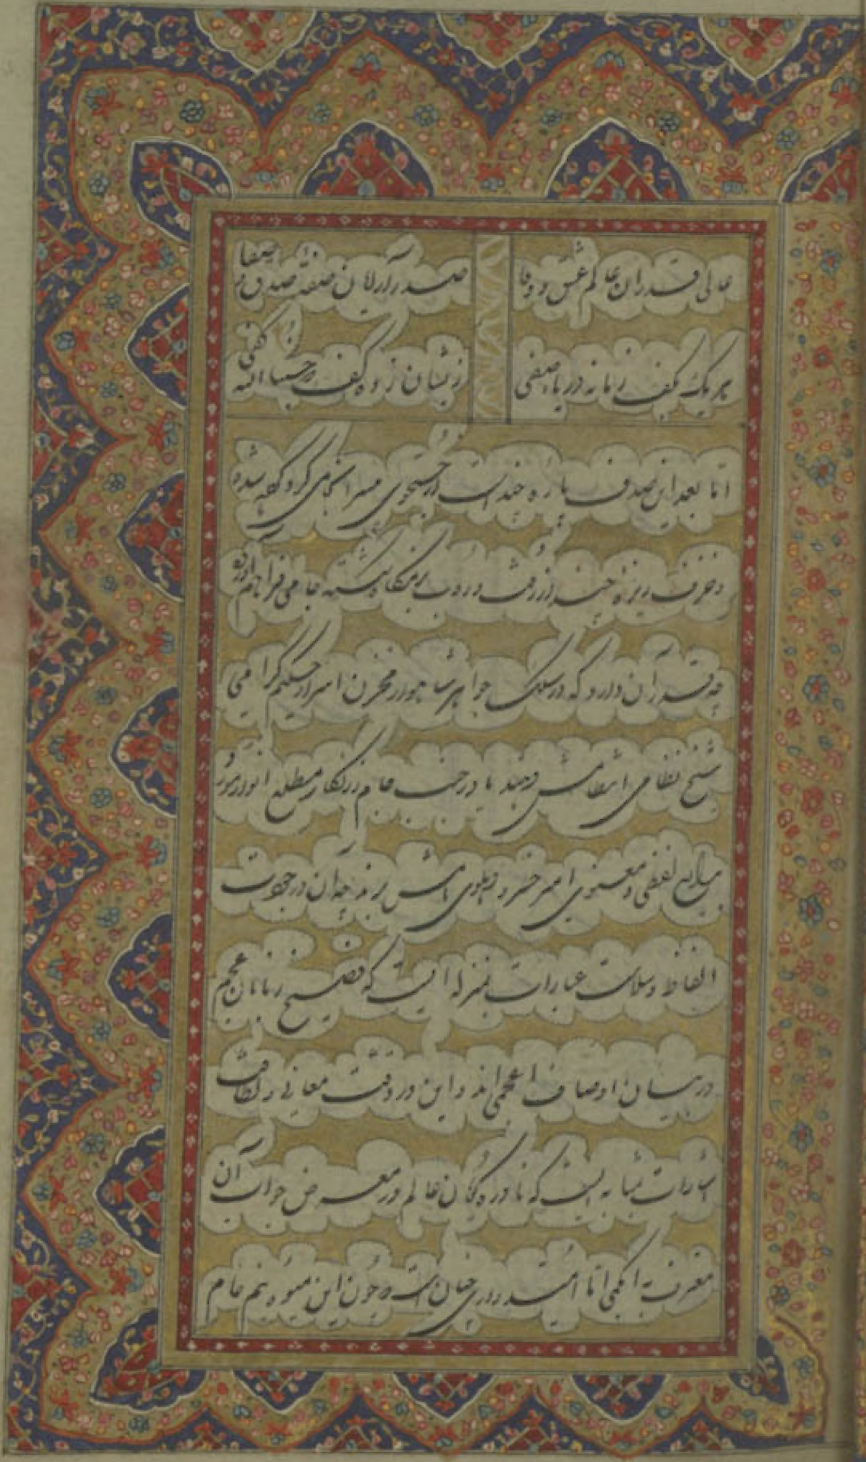 عالی قدران عالم عشق و وفا صدرآرایان صفه صدق و صفا
هر یک بکف زمانه دریا صفتی زیشان زده کف در حسبنا الله کفی
اما بعد این صدف پاره چند است از جستجوی کرده شده
و خزف ریزه چند از رفت و روب بزمگاه شکسته جامی فراهم آورده
چه قدر آن دارد که در سلک جواهر شاهوار مخزن اسرار حکیم گرامی
شیخ نظامی انتظامش دهند یا در جنب جام زرنگار مطلع انوار مورد
بدایع لفظی و معنوی امیر خسرو دهلوی نامش برند چه آن در جودت
الفاظ و سلاست عبارات بمنزله ایست که فصیح زبانان عجم
در بیان اوصاف اعجمی اند و این در دقت معانی و لطافت
اشارات بمثابه ایست که نادره گویان عالم در معرض جواب آن
معترف به ابکمی اما امیدواری چنان است که چون این میوه نیم خام